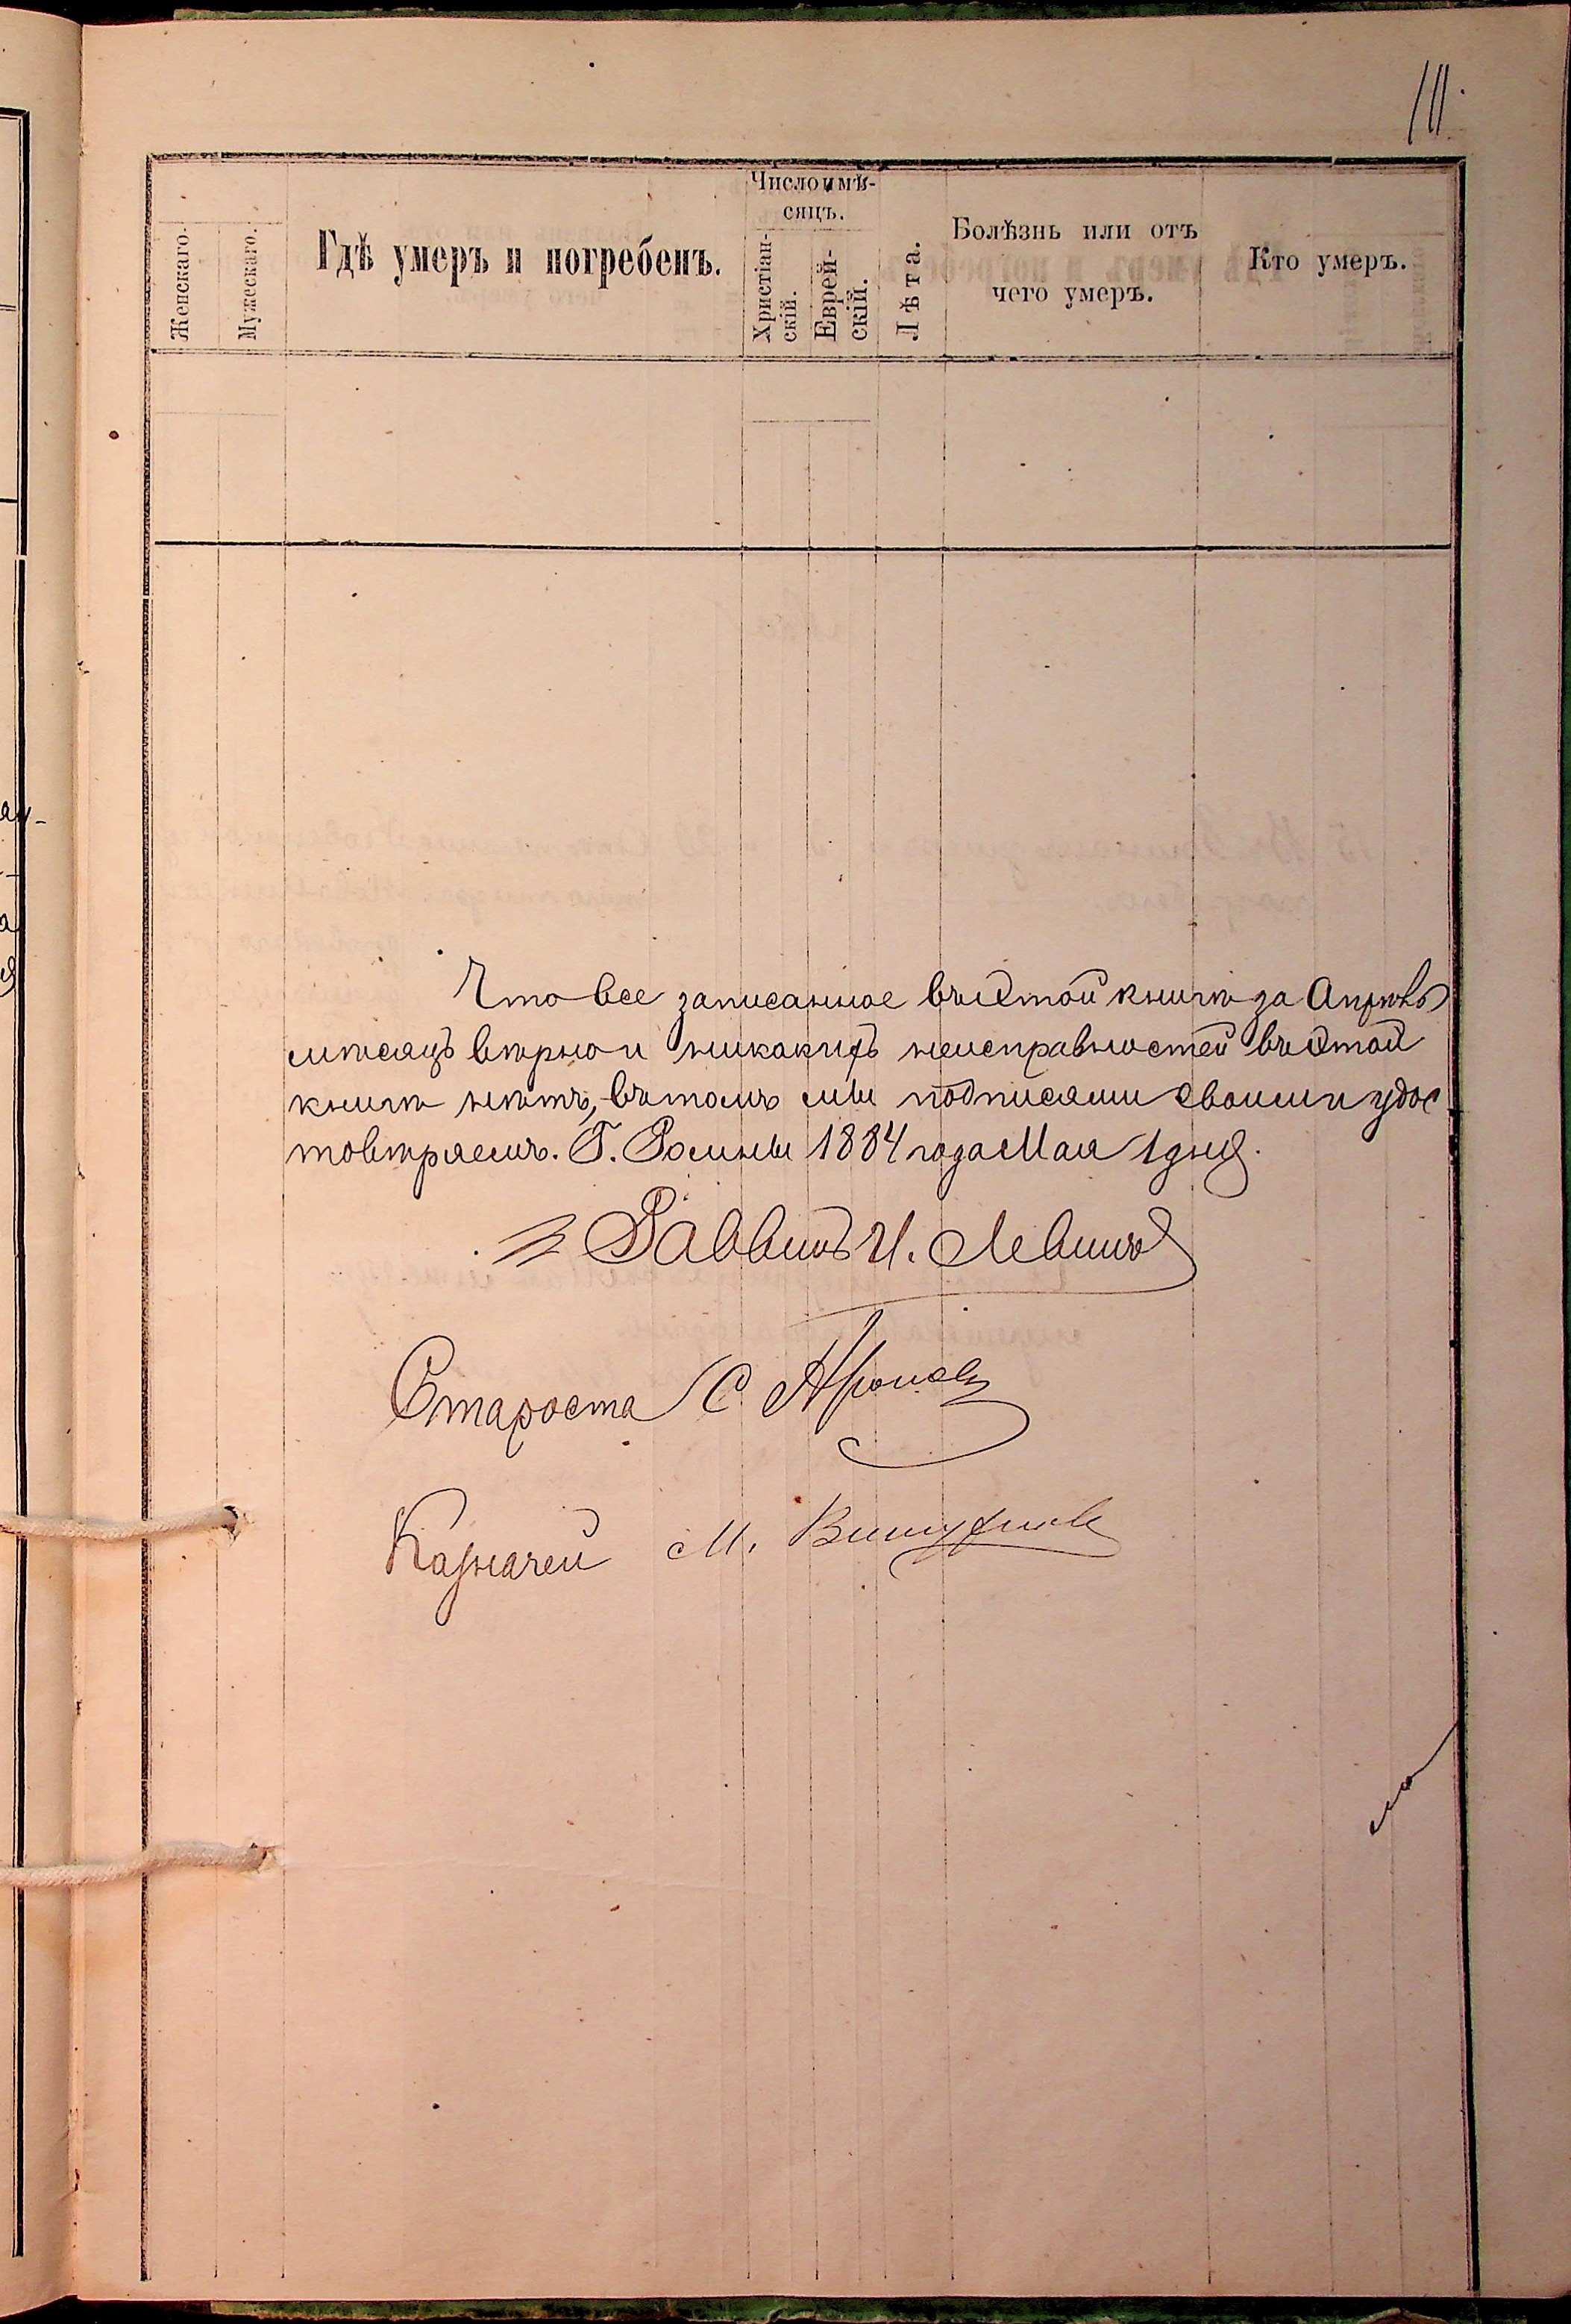 111.
Число и мѣ-
сяцъ.
Женскаго.
Мужескаго.
Гдѣ умеръ и погребенъ.
Христіан-
скій.
Еврей-
скій.
Лѣта.
Болѣзнь или отъ
чего умеръ.
Кто умеръ.
Что все записанное въ этой книгѣ за Апрѣль
мѣсяцъ вѣрно и никакихъ неисправностей въ этой
книгѣ нѣтъ, въ томъ мы подписями своими удос
товѣряемъ. Г. Ромны 1884 года Мая 1 дня.
Раввинъ И. Левинъ
Староста С. Аронов
Казначей М.